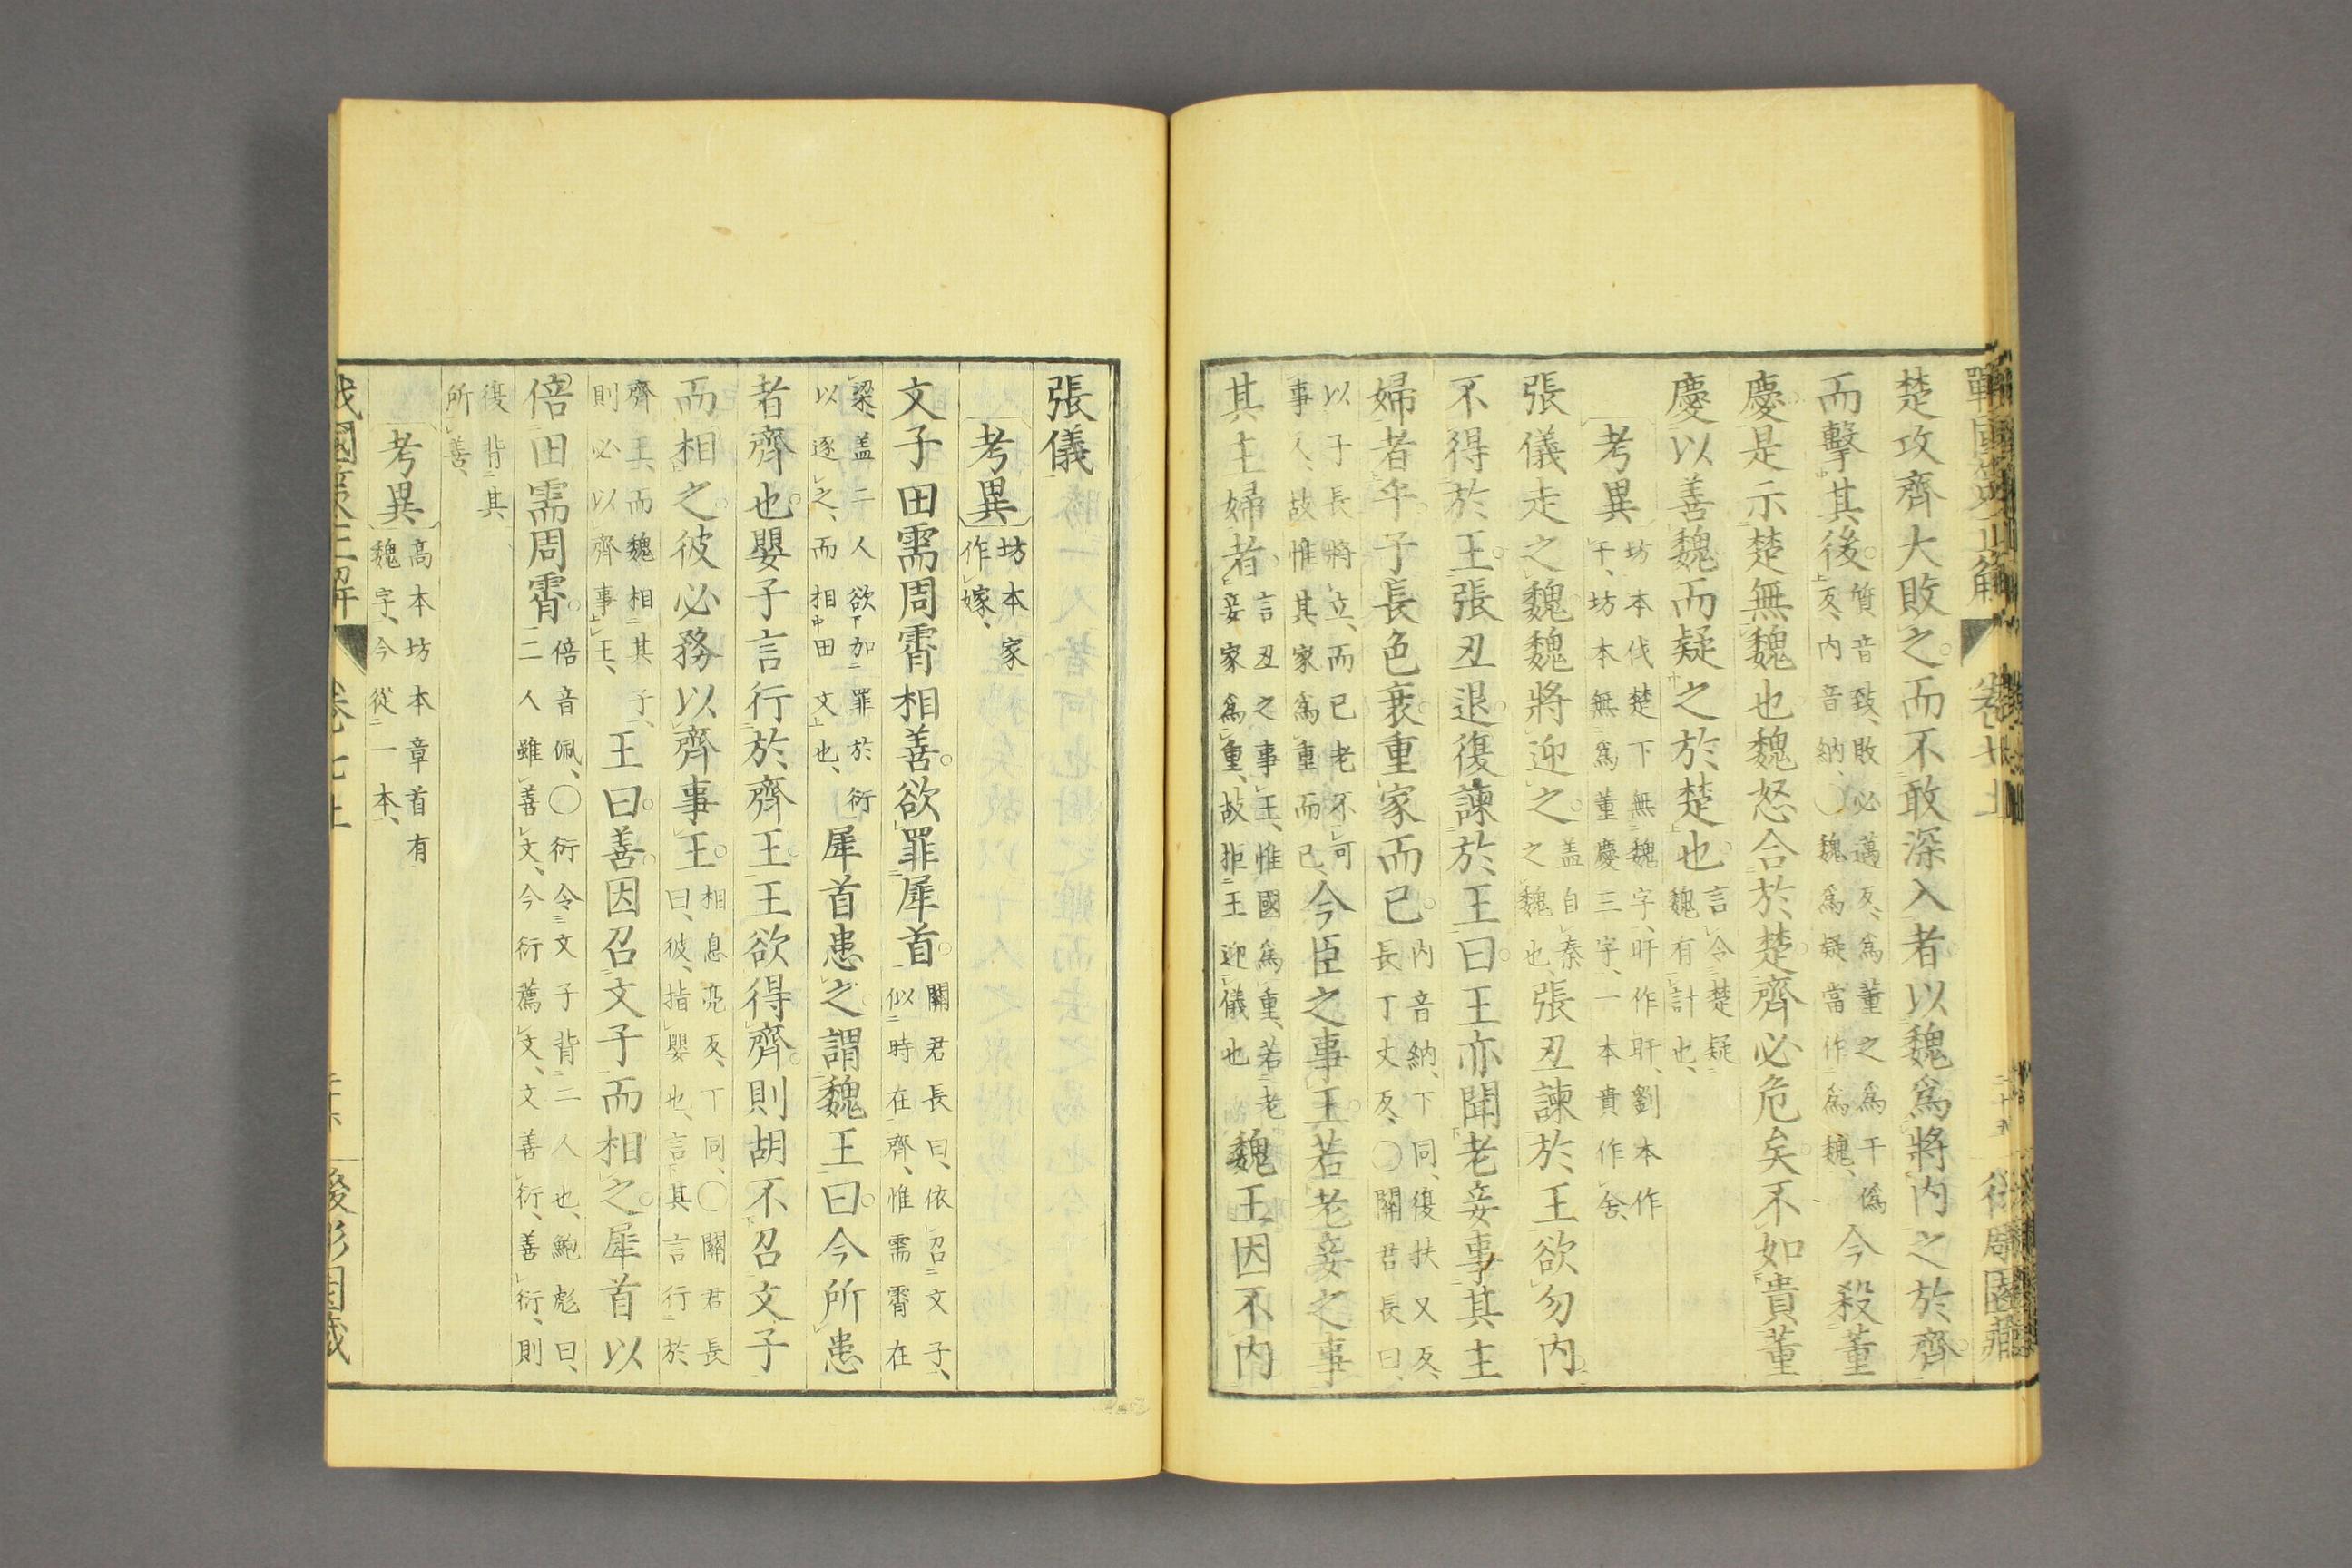 楚攻齊大敗之而不敢深入者以魏爲將内之於齊
而擊其後質音致、敗必邁反、爲董之爲干僞反、内音納、〇魏爲疑當作爲魏、今殺董
慶是示楚無魏也魏怒合於楚齊必危矣不如貴董
慶以善魏而疑之於楚也言令楚疑魏有計也、
考異坊本伐楚下無魏字、旰作盰、劉本作干、坊本無爲董慶三字、一本貴作舍、
張儀走之魏魏將迎之盖自秦之魏也、張丑諫於王欲勿内
不得於王張丑退復諫於王曰王亦聞老妾事其主
婦者乎子長色衰重家而已内音納、下同、復扶又反、長丁丈反、〇關君長曰、
以子長將立、而已老不可事人、故惟其家爲重而已、今臣之事王若老妾之事
其主婦者言丑之事王、惟國爲重、若老妾家爲重、故拒王迎儀也魏王因不内
張儀
考異坊本家作嫁、
文子田需周霄相善欲罪犀首關君長曰、依召文子、似時在齊、惟需霄在
梁、盖二人欲加罪於衍以逐之、而相田文也、犀首患之謂魏王曰今所患
者齊也嬰子言行於齊王王欲得齊則胡不召文子
而相之彼必務以齊事王相息亮反、下同、〇關君長曰、彼、指嬰也、言其言行於
齊王、而魏相其子、則必以齊事王、王曰善因召文子而相之犀首以
倍田需周霄倍音佩、〇衍令文子背二人也、鮑彪曰、二人雖善文、今衍薦文、文善衍、善衍、則
復背其所善、
考異高本坊本章首有魏字、今從一本、